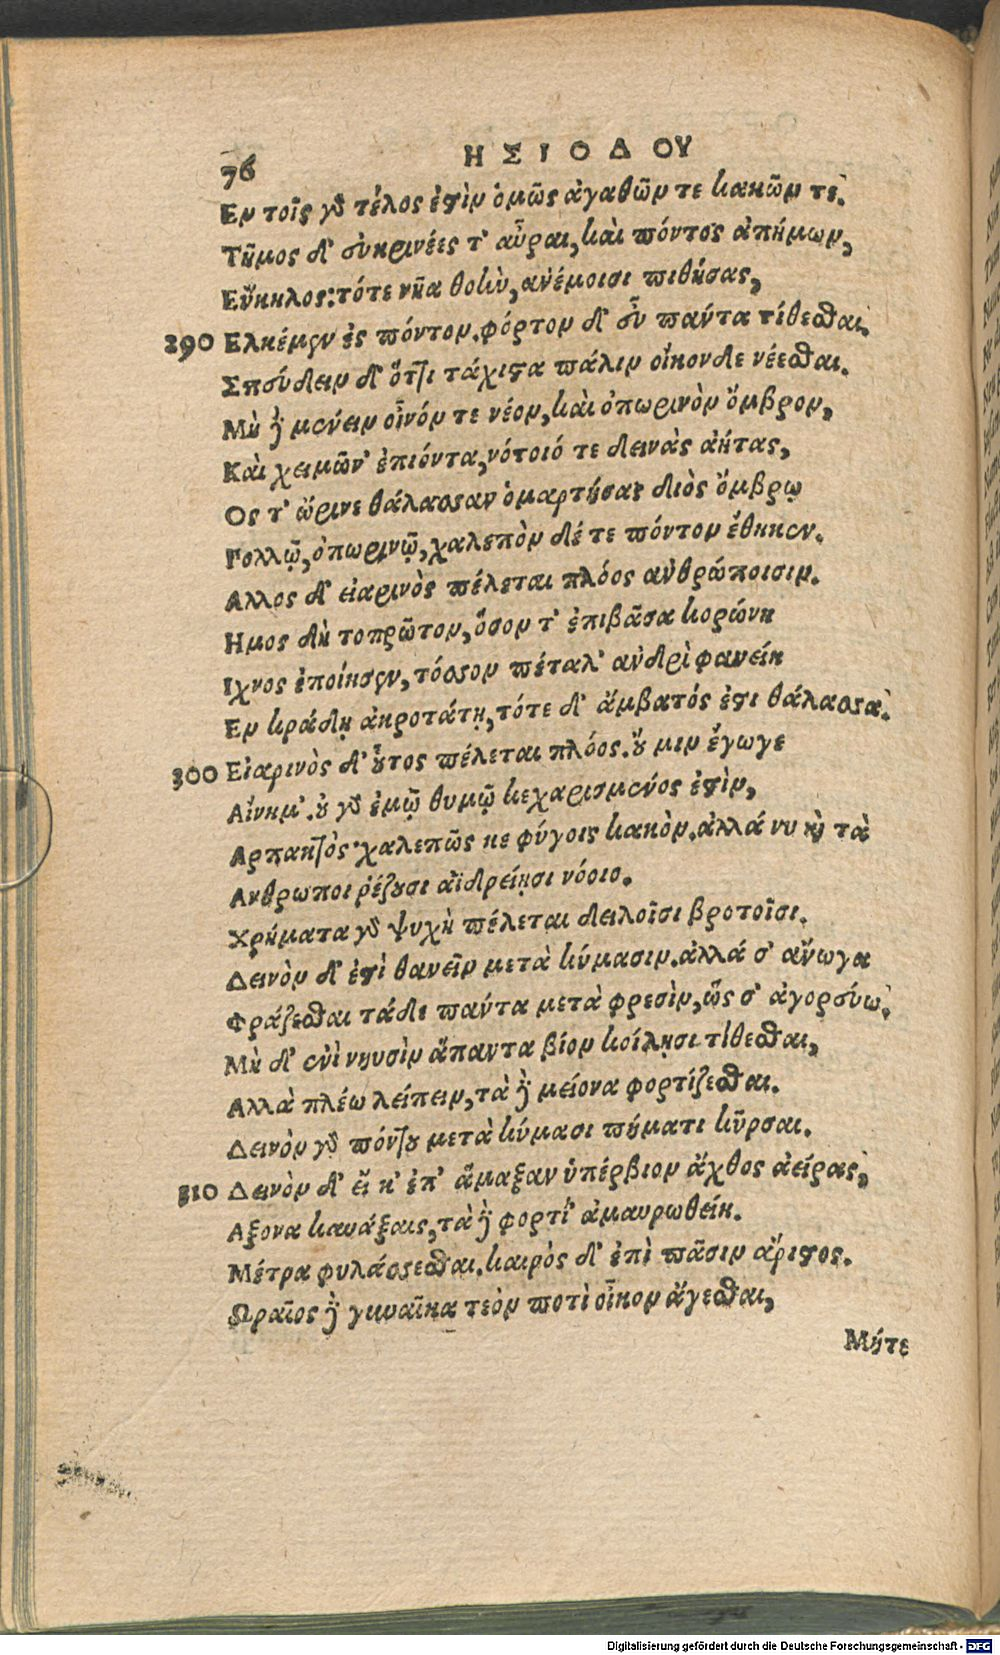 76
ΗΣΙΟΔΟΥ
Εν τοῖς γὰρ τέλος ἐστὶν ὁμῶς ἀγαθῶν τε κακῶν τε.
Τῆμος δ' εὐκρινέες τ' αὖραι, καὶ πόντος ἀπήμων,
Εὔκηλος: τότε νῆα θοὴν, ἀνέμοισι πιθήσας,
290 Ελκέμεν ἐς πόντον. φόρτον δ' εὖ πάντα τίθεσθαι.
Σπεύδειν δ' ὅττι τάχιστα πάλιν οἶκονδε νέεσθαι.
Μὴ δὲ μένειν οἶνόν τε νέον, καὶ ὀπωρινὸν ὄμβρον,
Καὶ χειμῶν' ἐπιόντα, νότοιό τε δεινὰς ἀήτας,
Ος τ' ὤρινε θάλασσαν ὁμαρτήσας διὸς ὄμβρῳ
Πολλῷ, ὀπωρινῷ, χαλεπὸν δέ τε πόντον ἔθηκεν.
Αλλος δ' εἰαρινὸς πέλεται πλόος ἀνθρώποισιν.
Ημος δὴ τοπρῶτον, ὅσον τ' ἐπιβᾶσα κορώνη
Ιχνος ἐποίησεν, τόσσον πέταλ' ἀνδρὶ φανείη
Εν κράδῃ ἀκροτάτῃ, τότε δ' ἄμβατός ἐστι θάλασσα.
300 Εἰαρινὸς δ' οὗτος πέλεται πλόος. οὔ μιν ἔγωγε
Αἴνημ'. οὐ γὰρ ἐμῷ θυμῷ κεχαρισμένος ἐστὶν,
Αρπακτός. χαλεπῶς κε φύγοις κακὸν. ἀλλά νυ καὶ τὰ
Ανθρωποι ῥέζουσι ἀϊδρείῃσι νόοιο.
Χρήματα γὰρ ψυχὴ πέλεται δειλοῖσι βροτοῖσι.
Δεινὸν δ' ἐστὶ θανεῖν μετὰ κύμασιν. ἀλλά σ' ἄνωγα
Φράζεσθαι τάδε πάντα μετὰ φρεσὶν, ὥς σ' ἀγορεύω.
Μὴ δ' ἐνὶ νηυσὶν ἅπαντα βίον κοίλῃσι τίθεσθαι,
Αλλὰ πλέω λείπειν, τὰ δὲ μείονα φορτίζεσθαι.
Δεινὸν γὰρ πόντου μετὰ κύμασι πήματι κῦρσαι.
310 Δεινὸν δ' εἴ κ' ἐπ' ἅμαξαν ὑπέρβιον ἄχθος ἀείρας,
Αξονα καυάξαις, τὰ δὲ φορτί' ἀμαυρωθείη.
Μέτρα φυλάσσεσθαι. καιρὸς δ' ἐπὶ πᾶσιν ἄριστος.
Ωραῖος δὲ γυναῖκα τεὸν ποτὶ οἶκον ἄγεσθαι,
Μήτε
Digitalisierung gefördert durch die Deutsche Forschungsgemeinschaft - DFG